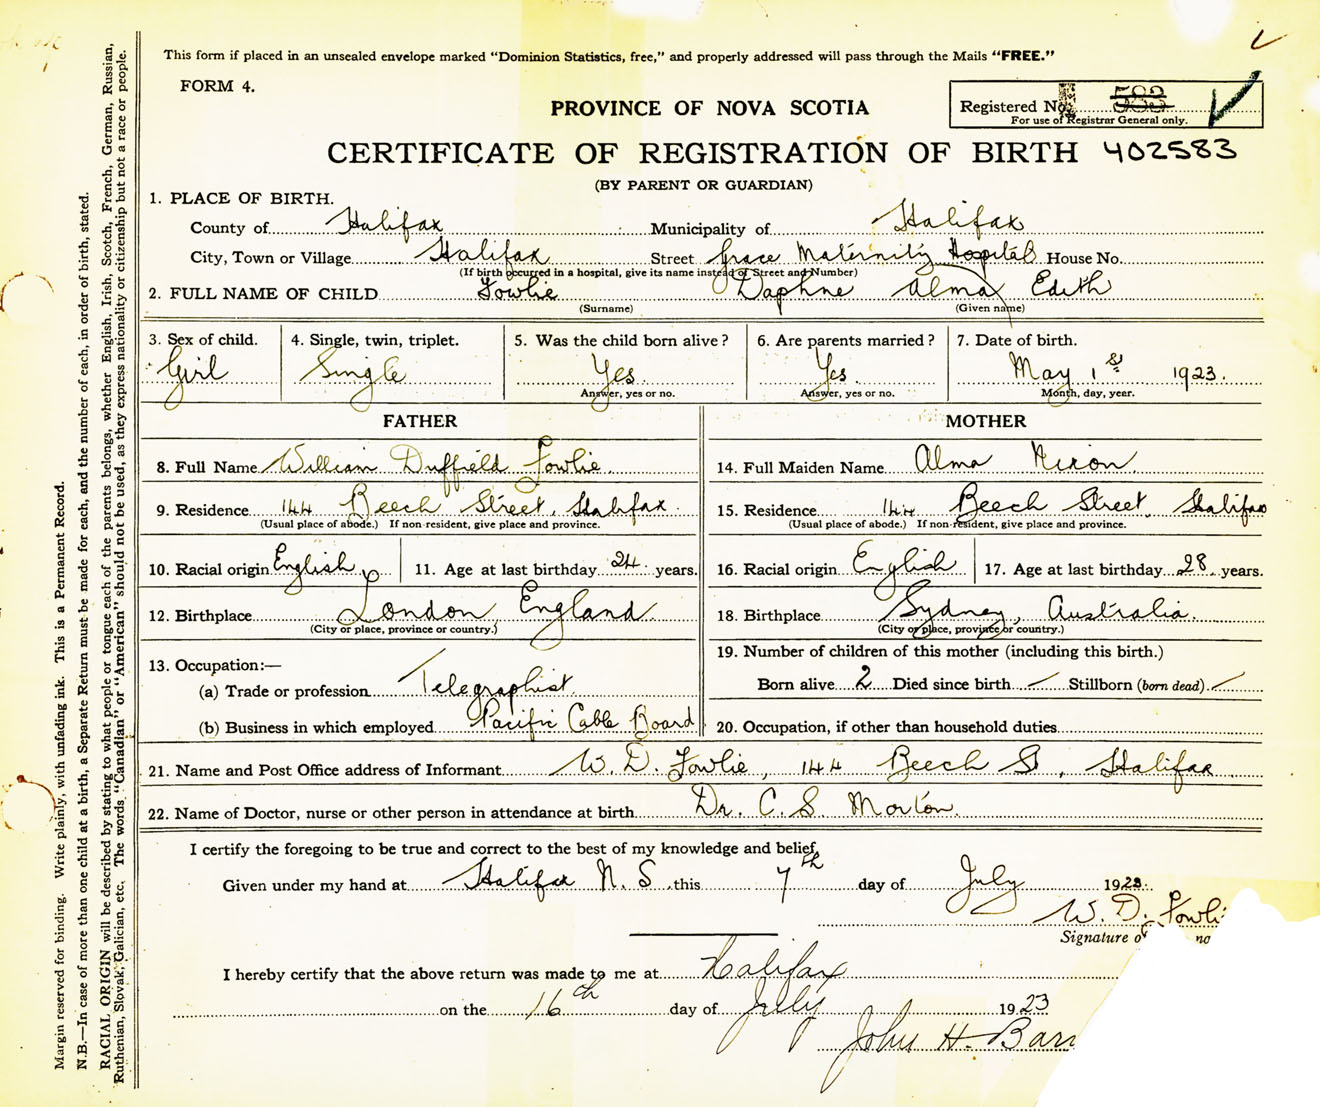 This form if placed in an unsealed envelope marked “Dominion Statistics, free,” and properly addressed will pass through the Mails “FREE.”
FORM 4.
PROVINCE OF NOVA SCOTIA
Registered No. 583
For use of Registrar General only.
CERTIFICATE OF REGISTRATION OF BIRTH 402583
(BY PARENT OR GUARDIAN)
1. PLACE OF BIRTH.
County of Halifax Municipality of Halifax
City, Town or Village Halifax Street Grace Maternity Hospital House No.
(If birth occurred in a hospital, give its name instead of Street and Number)
2. FULL NAME OF CHILD Fowlie Daphne Alma Edith
(Surname) (Given name)
3. Sex of child. 4. Single, twin, triplet. 5. Was the child born alive? 6. Are parents married? 7. Date of birth.
Girl Single Yes. Yes. May 1st 1923.
Answer, yes or no. Answer, yes or no. Month, day, year.
FATHER MOTHER
8. Full Name William Duffield Fowlie. 14. Full Maiden Name Alma Nixon
9. Residence 144 Beech Street, Halifax. 15. Residence 144 Beech Street, Halifax
(Usual place of abode.) If non-resident, give place and province. (Usual place of abode.) If non-resident, give place and province.
10. Racial origin English 11. Age at last birthday 24 years. 16. Racial origin English 17. Age at last birthday 28 years.
12. Birthplace London, England. 18. Birthplace Sydney, Australia.
(City or place, province or country.) (City or place, province or country.)
13. Occupation:—
(a) Trade or profession Telegraphist.
(b) Business in which employed Pacific Cable Board
19. Number of children of this mother (including this birth.)
Born alive 2 Died since birth / Stillborn (born dead) /
20. Occupation, if other than household duties
21. Name and Post Office address of Informant W. D. Fowlie, 144 Beech St, Halifax.
22. Name of Doctor, nurse or other person in attendance at birth Dr. C. S. Morton.
I certify the foregoing to be true and correct to the best of my knowledge and belief.
Given under my hand at Halifax N. S. this 7th day of July 1923.
W. D. Fowli
Signature o
I hereby certify that the above return was made to me at Halifax
on the 16th day of July 1923
John H. Barn
Margin reserved for binding. Write plainly, with unfading ink. This is a Permanent Record.
N.B.—In case of more than one child at a birth, a Separate Return must be made for each, and the number of each, in order of birth, stated.
RACIAL ORIGIN will be described by stating to what people or tongue each of the parents belongs, whether English, Irish, Scotch, French, German, Russian,
Ruthenian, Slovak, Galician, etc. The words “Canadian” or “American” should not be used, as they express nationality or citizenship but not a race or people.